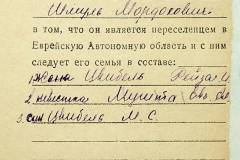 Шмуль Мордкович
в том, что он является переселенцем в
Еврейскую Автономную область и с ним
следует его семья в составе:
1. жена Цвибель
2. невестка
3. сын Цвибель М. С.